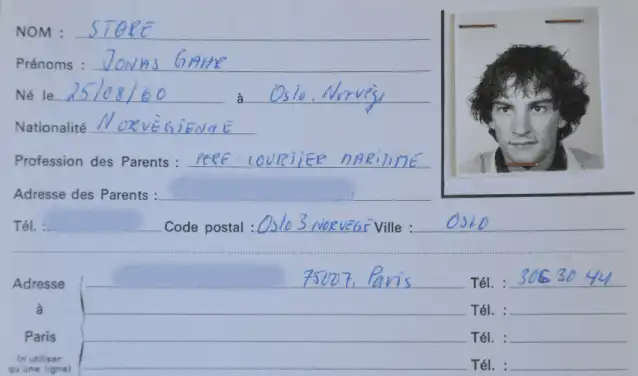 NOM : STØRE
Prénoms : JONAS GAHR
Né le 25/08/60 à Oslo, Norvège
Nationalité NORVÈGIENNE
Profession des Parents : PERE COURTIER MARITIME
Adresse des Parents :
Tél. : Code postal : Oslo 3 NORVEGE Ville : OSLO
Adresse 75007, Paris Tél. : 306 30 44
à Tél. :
Paris Tél. :
(n'utiliser
qu'une ligne) Tél. :